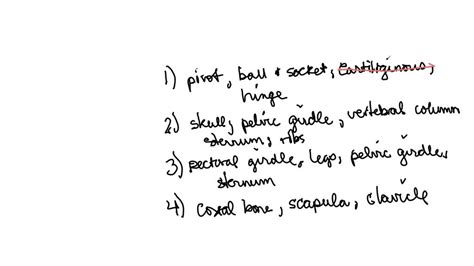 1) pivot, ball & socket, cartiliginous,
hinge
2) skull, pelvic girdle, vertebral column
sternum, ribs
3) pectoral girdle, legs, pelvic girdle,
sternum
4) coxal bone, scapula, clavicle